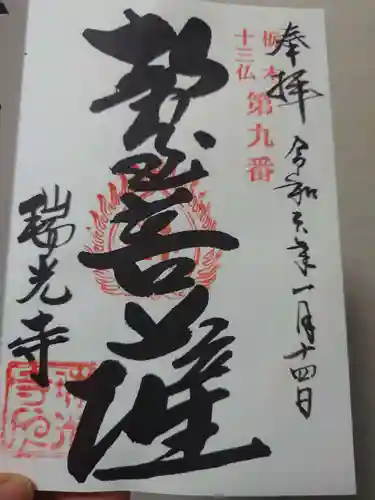 奉拝
令和六年一月十四日
栃木
十三仏
第九番
勢至菩薩
瑞光寺